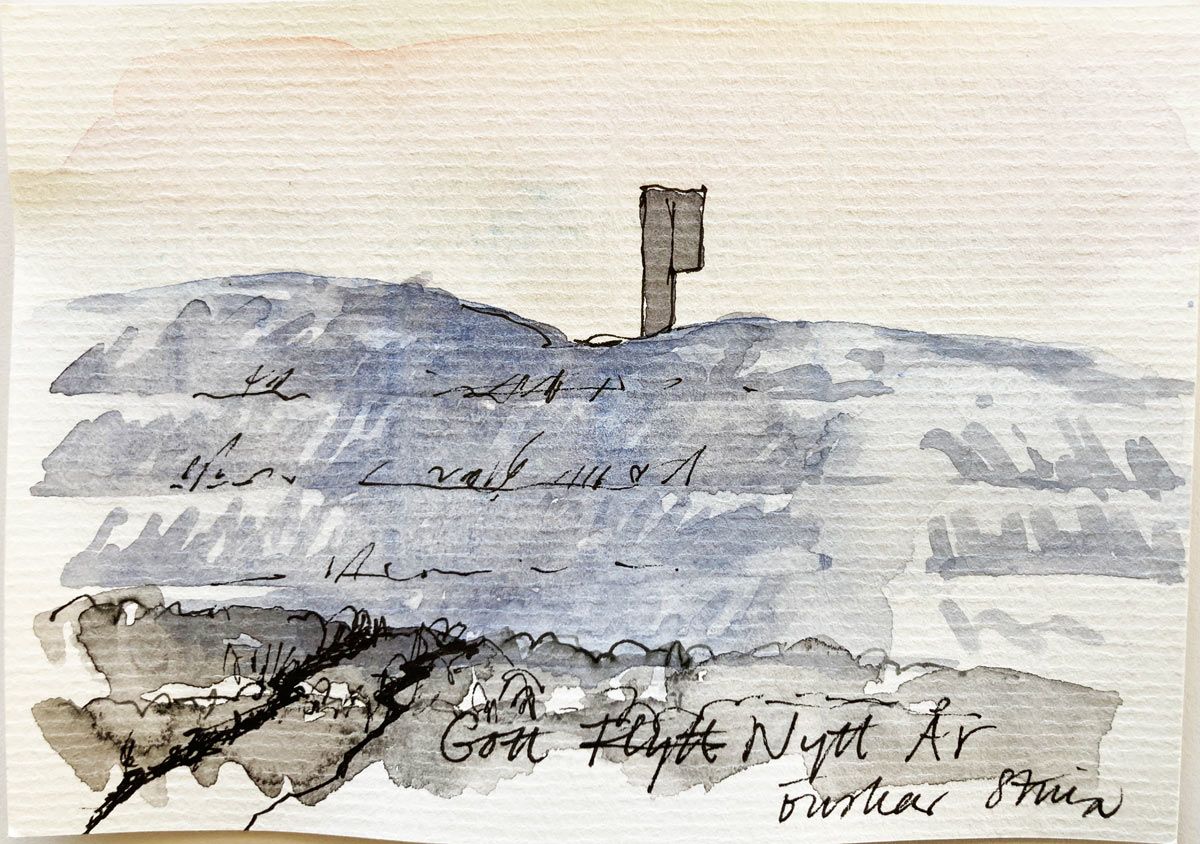 Gott Flytt Nytt År
önskar Stina